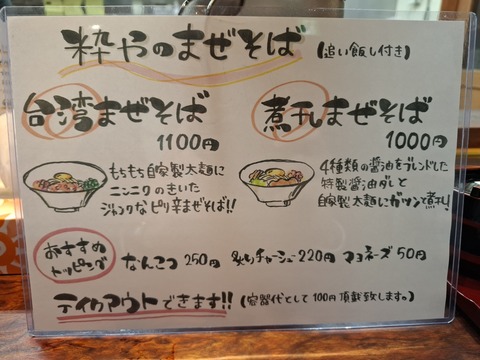 粋やのまぜそば (追い飯し付き)
台湾まぜそば
1100円
もちもち自家製太麺に
ニンニクのきいた
ジャンクなピリ辛まぜそば!!
煮干しまぜそば
1000円
4種類の醤油をブレンドした
特製醤油ダレと
自家製太麺にガツンと煮干し!
おすすめトッピング
なんこつ 250円 炙りチャーシュー220円 マヨネーズ 50円
テイクアウトできます!! (容器代として100円頂戴致します。)